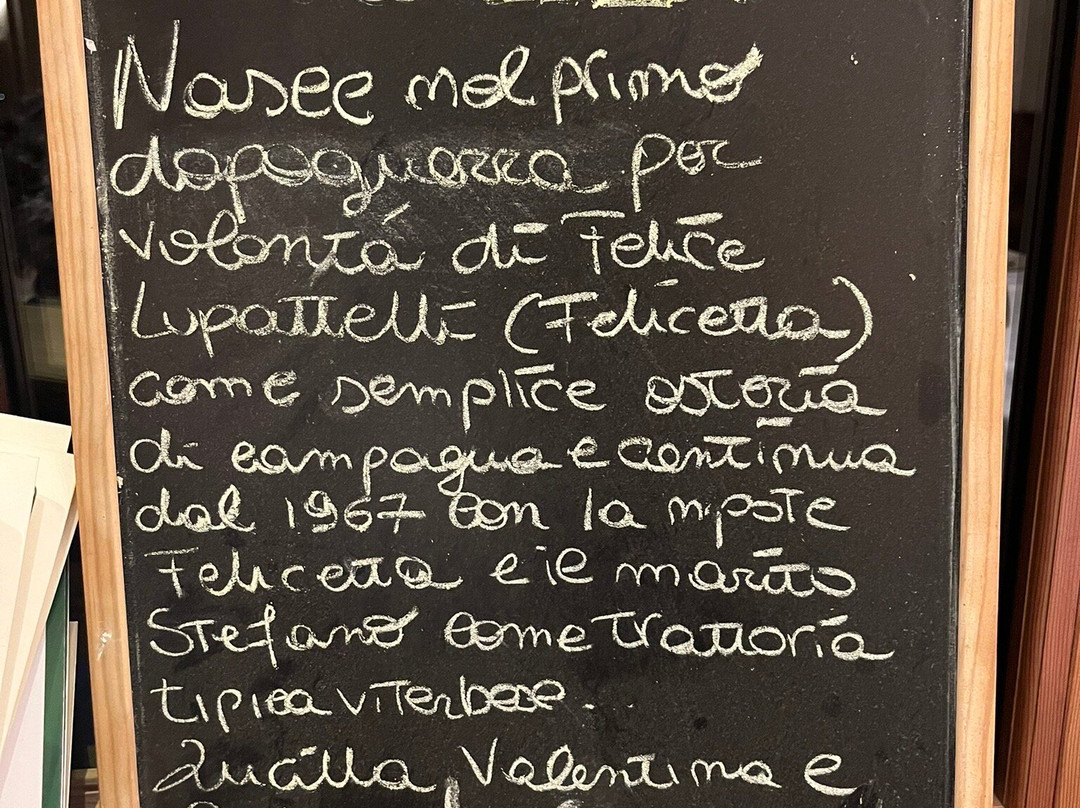 Nasce nel primo
dopoguerra per
volontá di Felice
Lupattelli (Felicetta)
come semplice osteria
di campagna e continua
dal 1967 con la nipote
Felicetta e il marito
Stefano come trattoria
tipica viterbese.
Lucilla, Valentina e